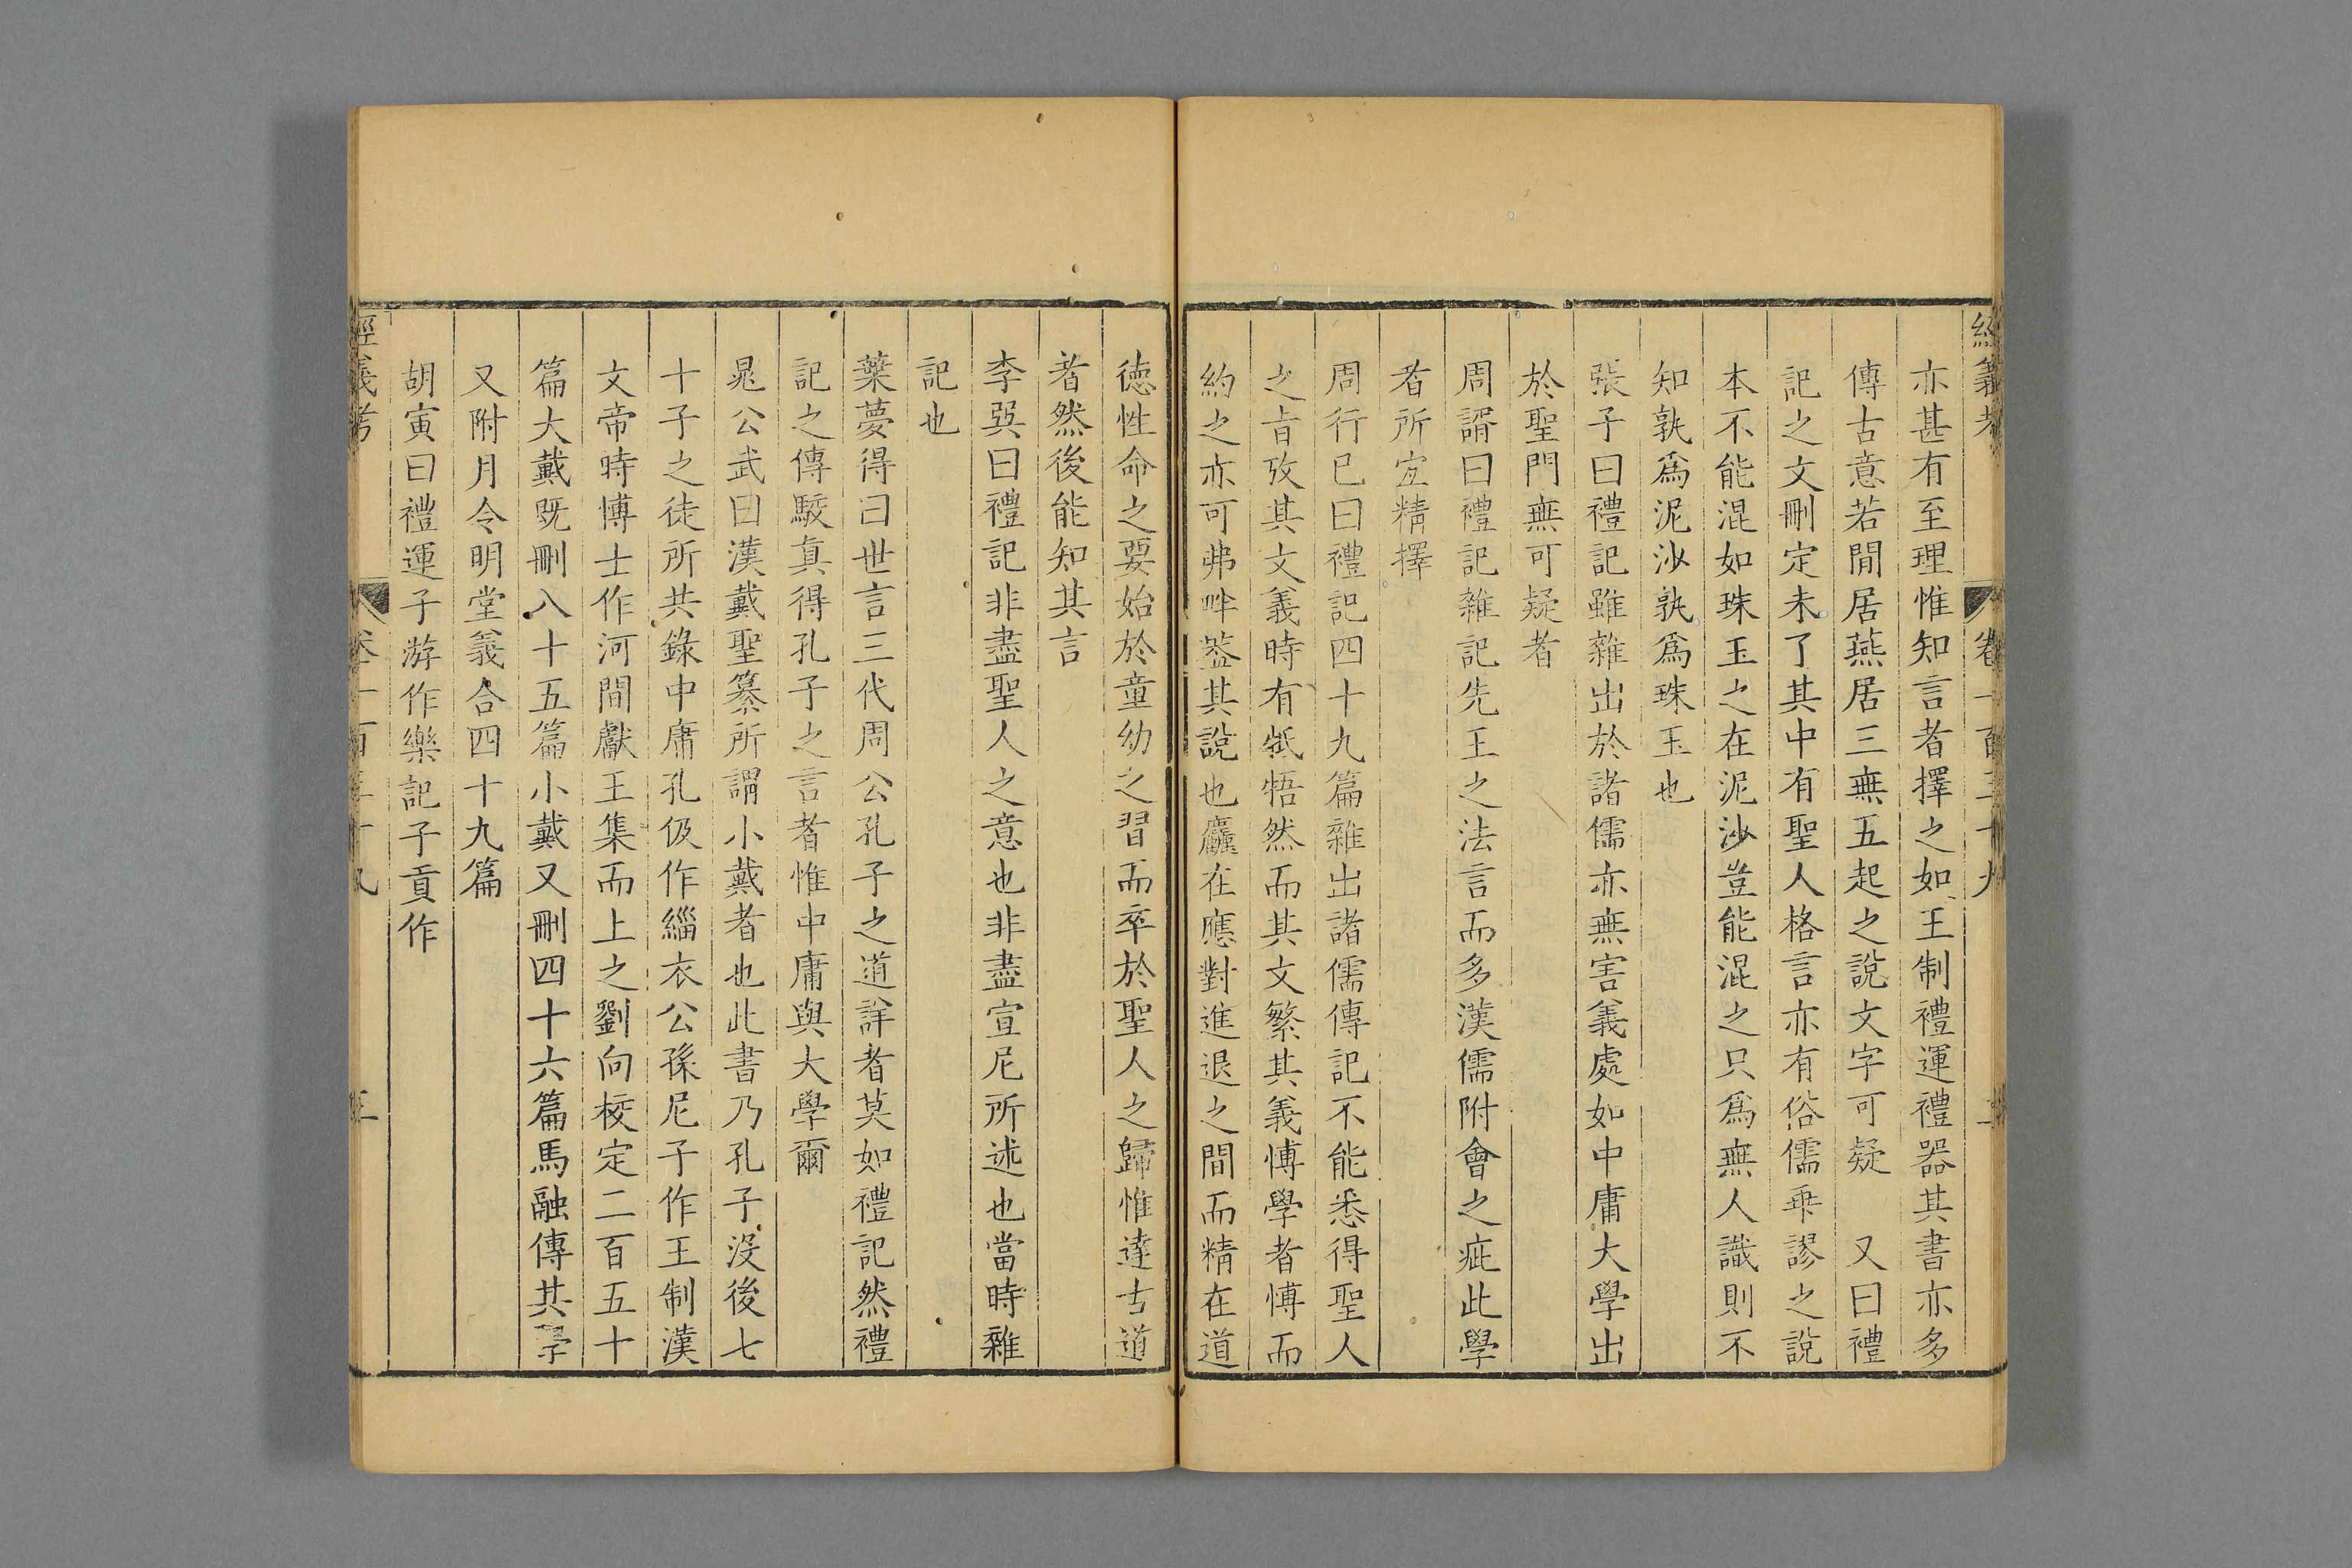 亦甚有至理惟知言者擇之如王制禮運禮器其書亦多
傳古意若閒居燕居三無五起之說文字可疑　又曰禮
記之文刪定未了其中有聖人格言亦有俗儒乖謬之說
本不能混如珠玉之在泥沙豈能混之只爲無人識則不
知孰爲泥沙孰爲珠玉也
張子曰禮記雖雜出於諸儒亦無害義處如中庸大學出
於聖門無可疑者
周諝曰禮記雜記先王之法言而多漢儒附會之疵此學
者所宜精擇
周行己曰禮記四十九篇雜出諸儒傳記不能悉得聖人
之旨攷其文義時有牴牾然而其文繁其義博學者博而
約之亦可弗畔蓋其說也麤在應對進退之間而精在道
德性命之要始於童幼之習而卒於聖人之歸惟達古道
者然後能知其言
李巽曰禮記非盡聖人之意也非盡宣尼所述也當時雜
記也
葉夢得曰世言三代周公孔子之道詳者莫如禮記然禮
記之傳駁真得孔子之言者惟中庸與大學爾
晁公武曰漢戴聖纂所謂小戴者也此書乃孔子沒後七
十子之徒所共錄中庸孔伋作緇衣公孫尼子作王制漢
文帝時博士作河間獻王集而上之劉向校定二百五十
篇大戴既刪八十五篇小戴又刪四十六篇馬融傳其學
又附月令明堂義合四十九篇
胡寅曰禮運子游作樂記子貢作
經義考　卷一百三十九